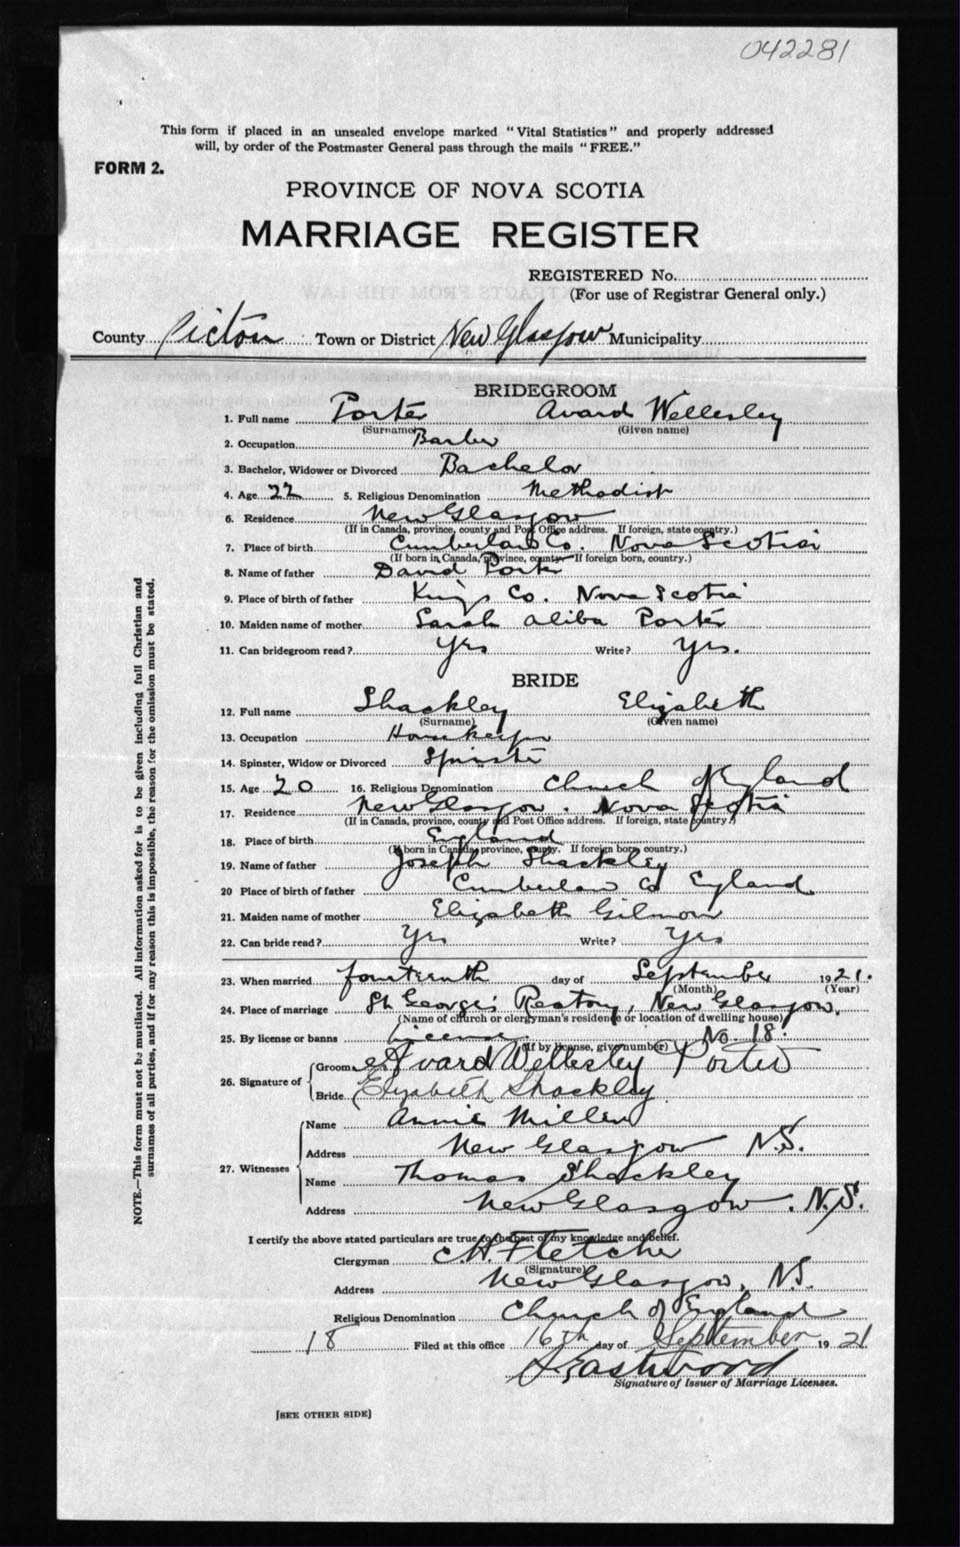 042281
This form if placed in an unsealed envelope marked "Vital Statistics" and properly addressed
will, by order of the Postmaster General pass through the mails "FREE."
FORM 2.
PROVINCE OF NOVA SCOTIA
MARRIAGE REGISTER
REGISTERED No.
(For use of Registrar General only.)
County Pictou Town or District New Glasgow Municipality
BRIDEGROOM
1. Full name Porter Avard Wellesley
(Surname) (Given name)
2. Occupation Barber
3. Bachelor, Widower or Divorced Bachelor
4. Age 22 5. Religious Denomination Methodist
6. Residence New Glasgow
(If in Canada, province, county and Post Office address. If foreign, state country.)
7. Place of birth Cumberland Co. Nova Scotia
(If born in Canada, province, county. If foreign born, country.)
8. Name of father David Porter
9. Place of birth of father Kings Co. Nova Scotia
10. Maiden name of mother Sarah Porter
11. Can bridegroom read? Yes Write? Yes.
BRIDE
12. Full name Shackley Elizabeth
(Surname) (Given name)
13. Occupation Housekeeper
14. Spinster, Widow or Divorced Spinster
15. Age 20 16. Religious Denomination Church of England
17. Residence New Glasgow. Nova Scotia
(If in Canada, province, county and Post Office address. If foreign, state country.)
18. Place of birth England
(If born in Canada, province, county. If foreign born, country.)
19. Name of father Joseph Shackley
20 Place of birth of father Cumberland Co England
21. Maiden name of mother Elizabeth Gilmour
22. Can bride read? Yes Write? Yes
23. When married fourteenth day of September 1921.
(Month) (Year)
24. Place of marriage St George's Rectory, New Glasgow.
(Name of church or clergyman's residence or location of dwelling house)
25. By license or banns License No. 18.
(If by license, give number)
26. Signature of
Groom Avard Wellesley Porter
Bride Elizabeth Shackley
27. Witnesses
Name Annie Miller
Address New Glasgow N.S.
Name Thomas Shackley
Address New Glasgow. N.S.
I certify the above stated particulars are true to the best of my knowledge and belief.
Clergyman Fletcher
(Signature)
Address New Glasgow, N.S.
Religious Denomination Church of England
18 Filed at this office 16th day of September 1921
Eastwood
Signature of Issuer of Marriage Licenses.
[SEE OTHER SIDE]
NOTE.—This form must not be mutilated. All information asked for is to be given including full Christian and
surnames of all parties, and if for any reason this is impossible, the reason for the omission must be stated.